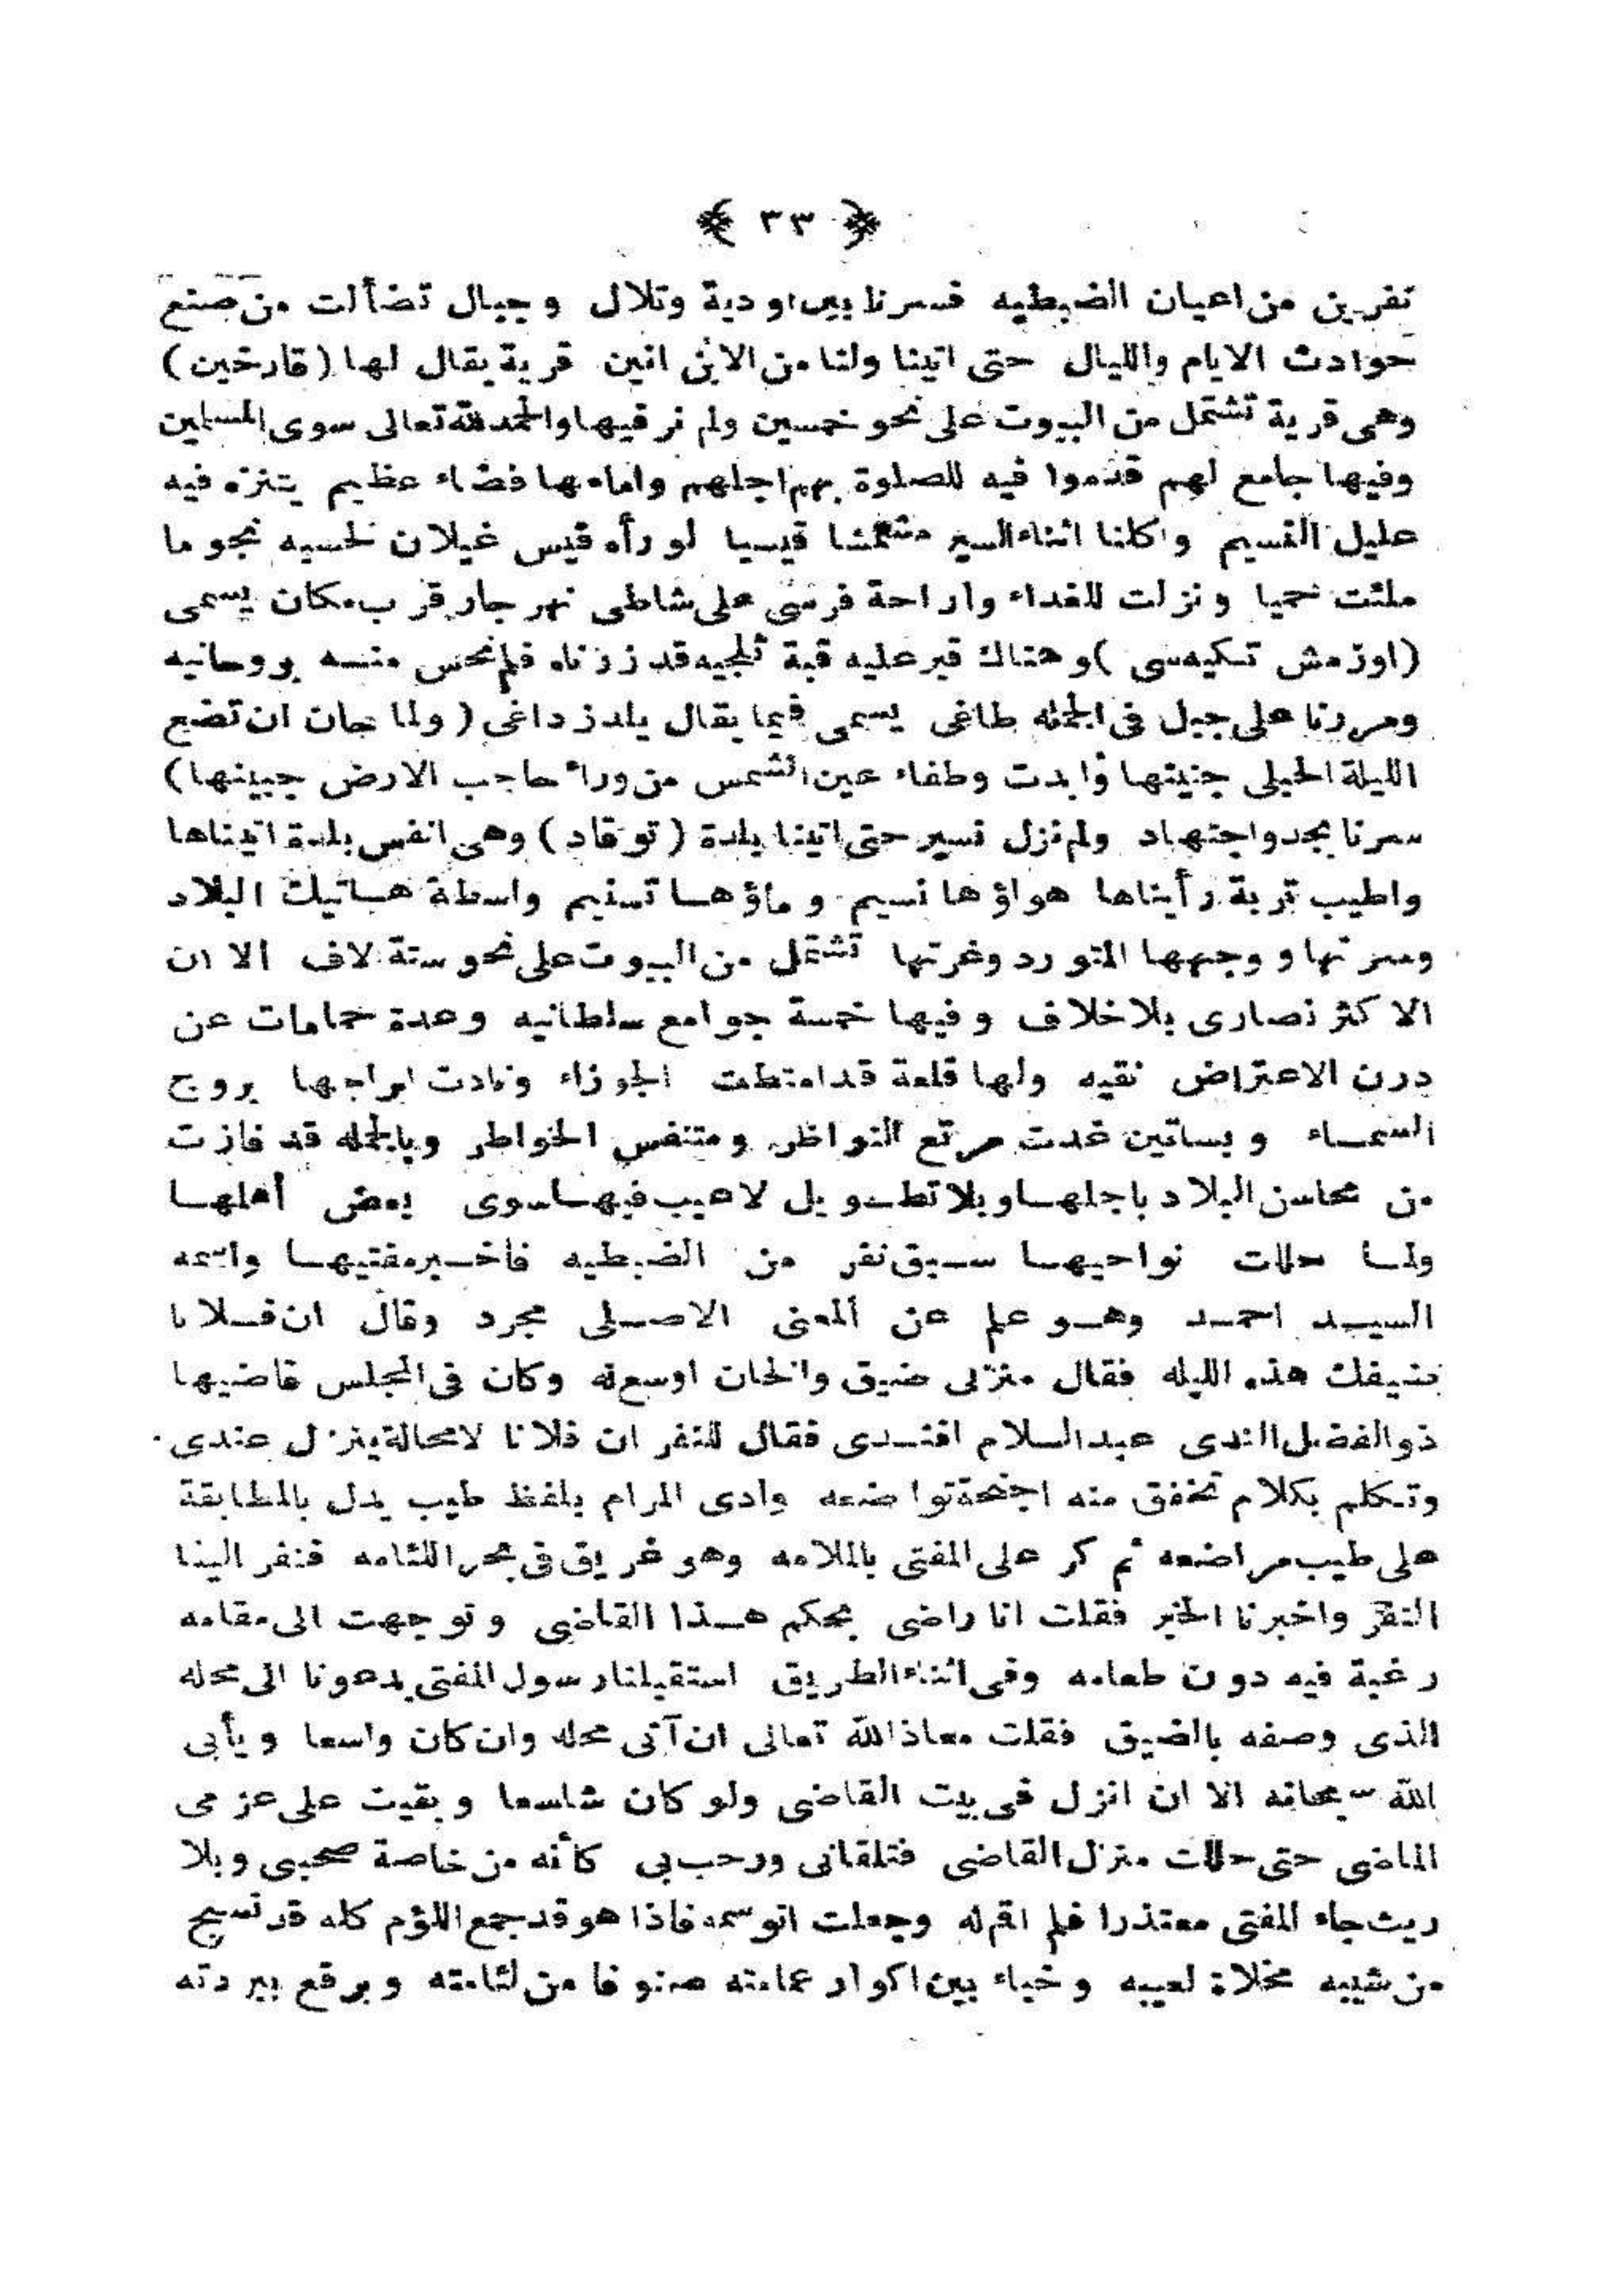 ﴿ ٣٣ ﴾
نفرين من اعيان الضبطيه فسرنا بين اودية وتلال وجبال تضألت من صنع
حوادث الايام والليال حتى اتينا ولنا من الاين انين قرية يقال لها (قارخين)
وهى قرية تشتمل من البيوت على نحو خمسين ولم نر فيها والحمد لله تعالى سوى المسلمين
وفيها جامع لهم قدموا فيه للصلوة بهم اجلهم وامامها فضاء عظيم يتنزه فيه
عليل النسيم واكلنا اثناء السير مشمشا قيسيا لو رأه قيس غيلان لحسبه نجوما
ملئت حميا ونزلت للغداء واراحة فرسى على شاطى نهر جار قرب مكان يسمى
(اوزمش تكيه سى) وهناك قبر عليه قبة ثلجيه قد زرناه فلم نحس منه بروحانيه
ومررنا على جبل فى الجمله طاغى يسمى فيما يقال يلدز داغى (ولما حان ان تضع
الليلة الحبلى جنينها وابدت وطفاء عين الشمس من وراء حاجب الارض جبينها)
سرنا بجد واجتهاد ولم نزل نسير حتى اتينا بلدة (توقاد) وهى انفس بلدة اتيناها
واطيب تربة رأيناها هواؤها نسيم وماؤها تسنيم واسطة هاتيك البلاد
وسرتها ووجهها المتورد وغرتها تشتمل من البيوت على نحو ستة لاف الا ان
الاكثر نصارى بلاخلاف وفيها خمسة جوامع سلطانيه وعدة حمامات عن
درن الاعتراض نقيه ولها قلعة قد امتطت الجوزاء ونادت ابراجها بروج
السماء وبساتين غدت مرتع النواظر ومتنفس الخواطر وبالجمله قد فازت
من محاسن البلاد باجلها وبلا تطويل لاعيب فيها سوى بعض أهلها
ولما حللت نواحيها سبق نفر من الضبطيه فاخبر مفتيها واسمه
السيد احمد وهو علم عن المعنى الاصلى مجرد وقال ان فلانا
ضيفك هذه الليله فقال منزلى ضيق والخان اوسع له وكان فى المجلس قاضيها
ذو الفضل الندى عبد السلام افندى فقال للنفر ان فلانا لامحالة ينزل عندى
وتكلم بكلام تخفق منه اجنحة تواضعه وادى المرام بلفظ طيب يدل بالمطابقة
على طيب مراضعه ثم كر على المفتى بالملامه وهو غريق فى بحر اللئامه فنفر الينا
النفر واخبرنا الخبر فقلت انا راضى بحكم هذا القاضى وتوجهت الى مقامه
رغبة فيه دون طعامه وفى اثناء الطريق استقبلنا رسول المفتى يدعونا الى محله
الذى وصفه بالضيق فقلت معاذ الله تعالى ان آتى محله وان كان واسعا ويأبى
الله سبحانه الا ان انزل فى بيت القاضى ولو كان شاسعا وبقيت على عزمى
الماضى حتى حللت منزل القاضى فتلقانى ورحب بى كأنه من خاصة صحبى وبلا
ريث جاء المفتى معتذرا فلم اقم له وجعلت اتوسمه فاذا هو قد جمع اللؤم كله قد نسج
من شيبه مخلاة لعيبه وخباء بين اكوار عمامته صنوفا من لئامته وبرقع ببردته